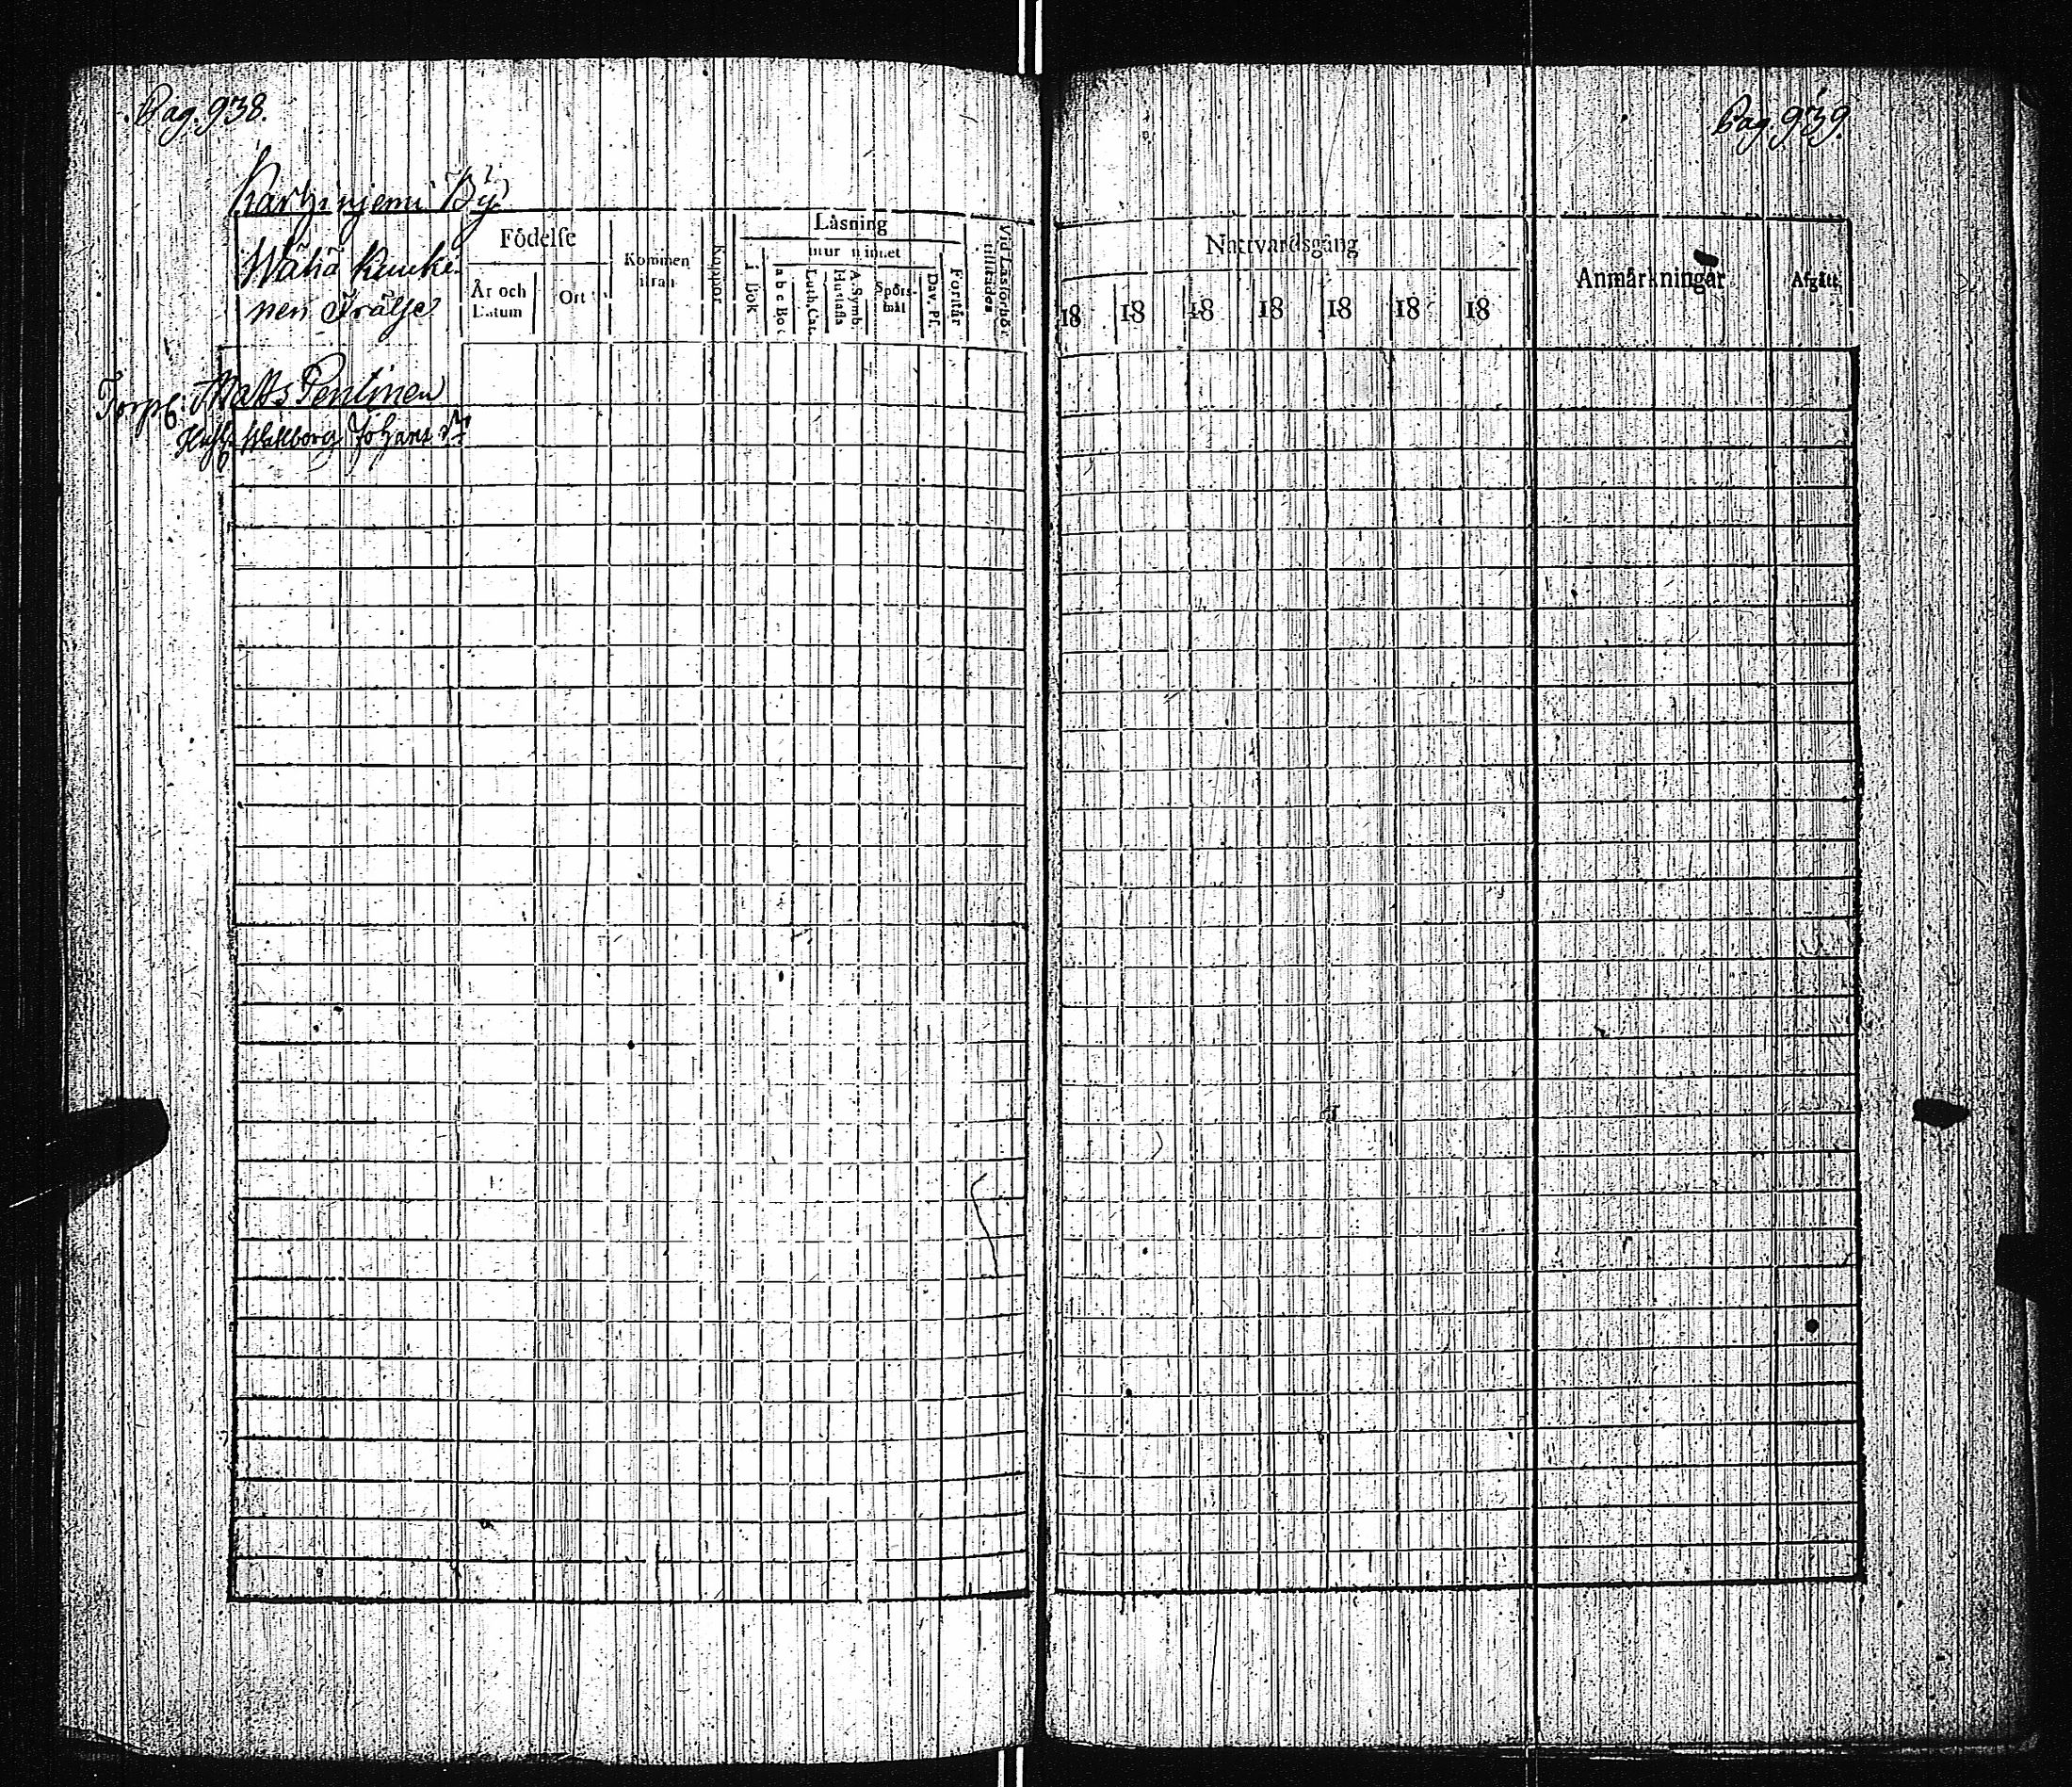 Pag. 938.
Pag. 939.
Karhinjemi By
Wähä Kuuki
nen Frälse
Födelse
År och
Datum
Ort
Kommen
ifrån
Koppor
Läsning
utur minnet
i Bok
a b c Bok
Luth. Cat.
Hustafla
A. Symb.
Spörs-
mål
Dav. Ps.
Förstår
Vid Läsförhör
tillstädes
Nattvardsgång
18 18 18 18 18 18 18
Anmärkningar
Afgått
Torp. Matts Pentinen
Hust. Walborg Johans dr